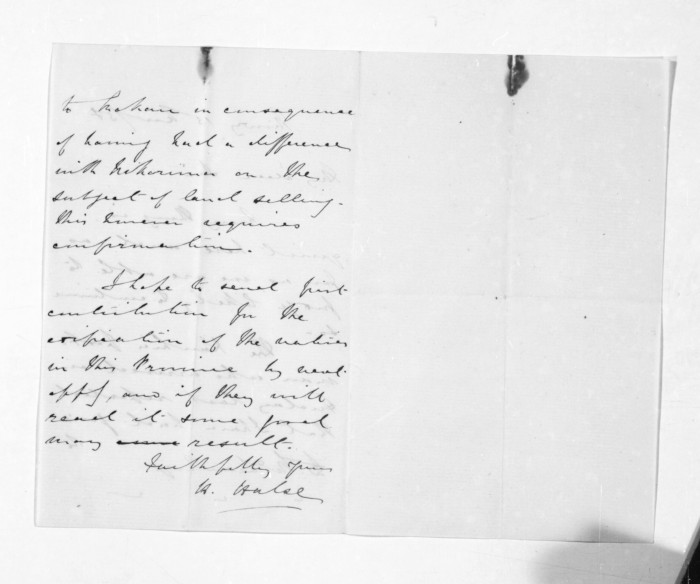 to in consequence
of having had a difference
with Ihakara on the
subject of land selling.
this rumour requires
confirmation.
I hope to send first
contribution for the
of the natives
in this Province by next
oppy, and if they will
read it some good
may result.
Faithfully yours
H. Halse